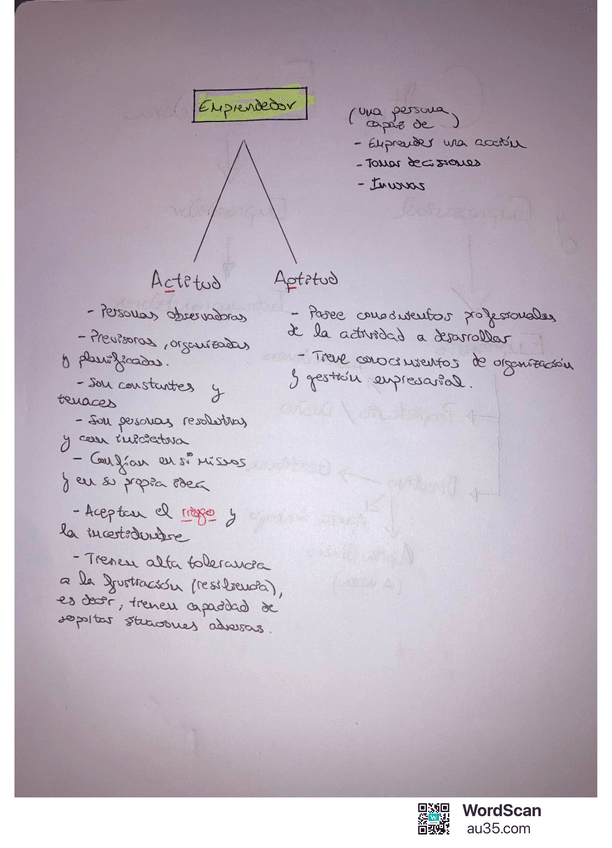 Emprendedor
(una persona
capaz de )
- Emprender una acción
- Tomar decisiones
- Innovar
Actitud
- Personas observadoras
- Previsoras, organizadas
y planificadas.
- Son constantes y
tenaces
- Son personas resolutivas
y con iniciativa
- Confían en sí mismos
y en su propia idea
- Aceptan el riesgo y
la incertidumbre
- Tienen alta tolerancia
a la frustración (resiliencia),
es decir, tienen capacidad de
soportar situaciones adversas.
Aptitud
- Posee conocimientos profesionales
de la actividad a desarrollar
- Tiene conocimientos de organización
y gestión empresarial.
WordScan
au35.com